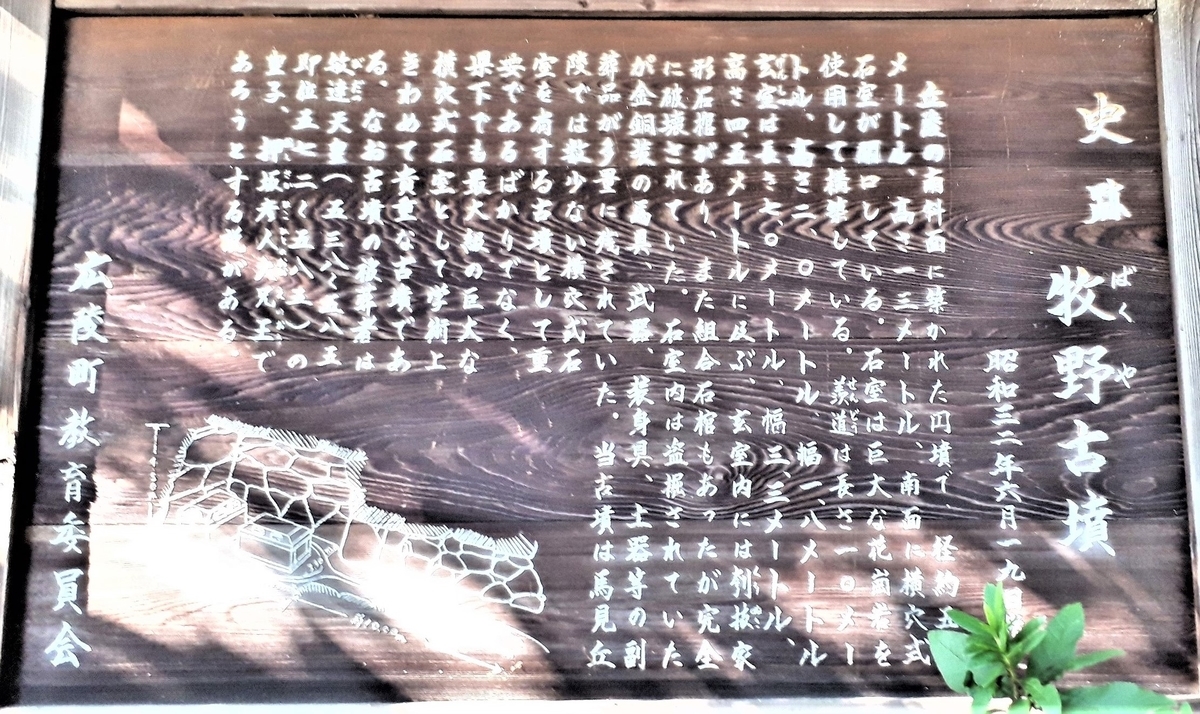 史
牧野古墳
ばくや
昭和三二年六月一九
丘陵の南斜面に築かれた円墳で、径約五
メートル、高さ一三メートル、南面に横穴式
石室が開口している。石室は巨大な花崗岩を
使用して構築している。羨道は長さ一〇メー
せんどう
トル、高さ二、〇メートル、幅一、八メートル
玄室は長さ七、〇メートル、幅三、三メートル、
高さ四、五メートルに及ぶ、玄室内には刳抜家
形石棺があり、また組合石棺もあったが完全
に破壊されていた。石室内は盗掘されていた
が金銅装の馬具、武器、装身具、土器等の副
葬品が多量に残されていた。当古墳は馬見丘
陵では数少ない横穴式石
室を有する古墳として重
要であるばかりでなく、
県下でも最大級の巨大な
横穴式石室として学術上
きわめて貴重な古墳であ
る。なお古墳の被葬者は
敏達天皇(五三八〜五八五
びだつ
即位五七二〜五八五)の
皇子、押坂彦人大兄王で
あろうとする説がある。
広陵町教育委員会